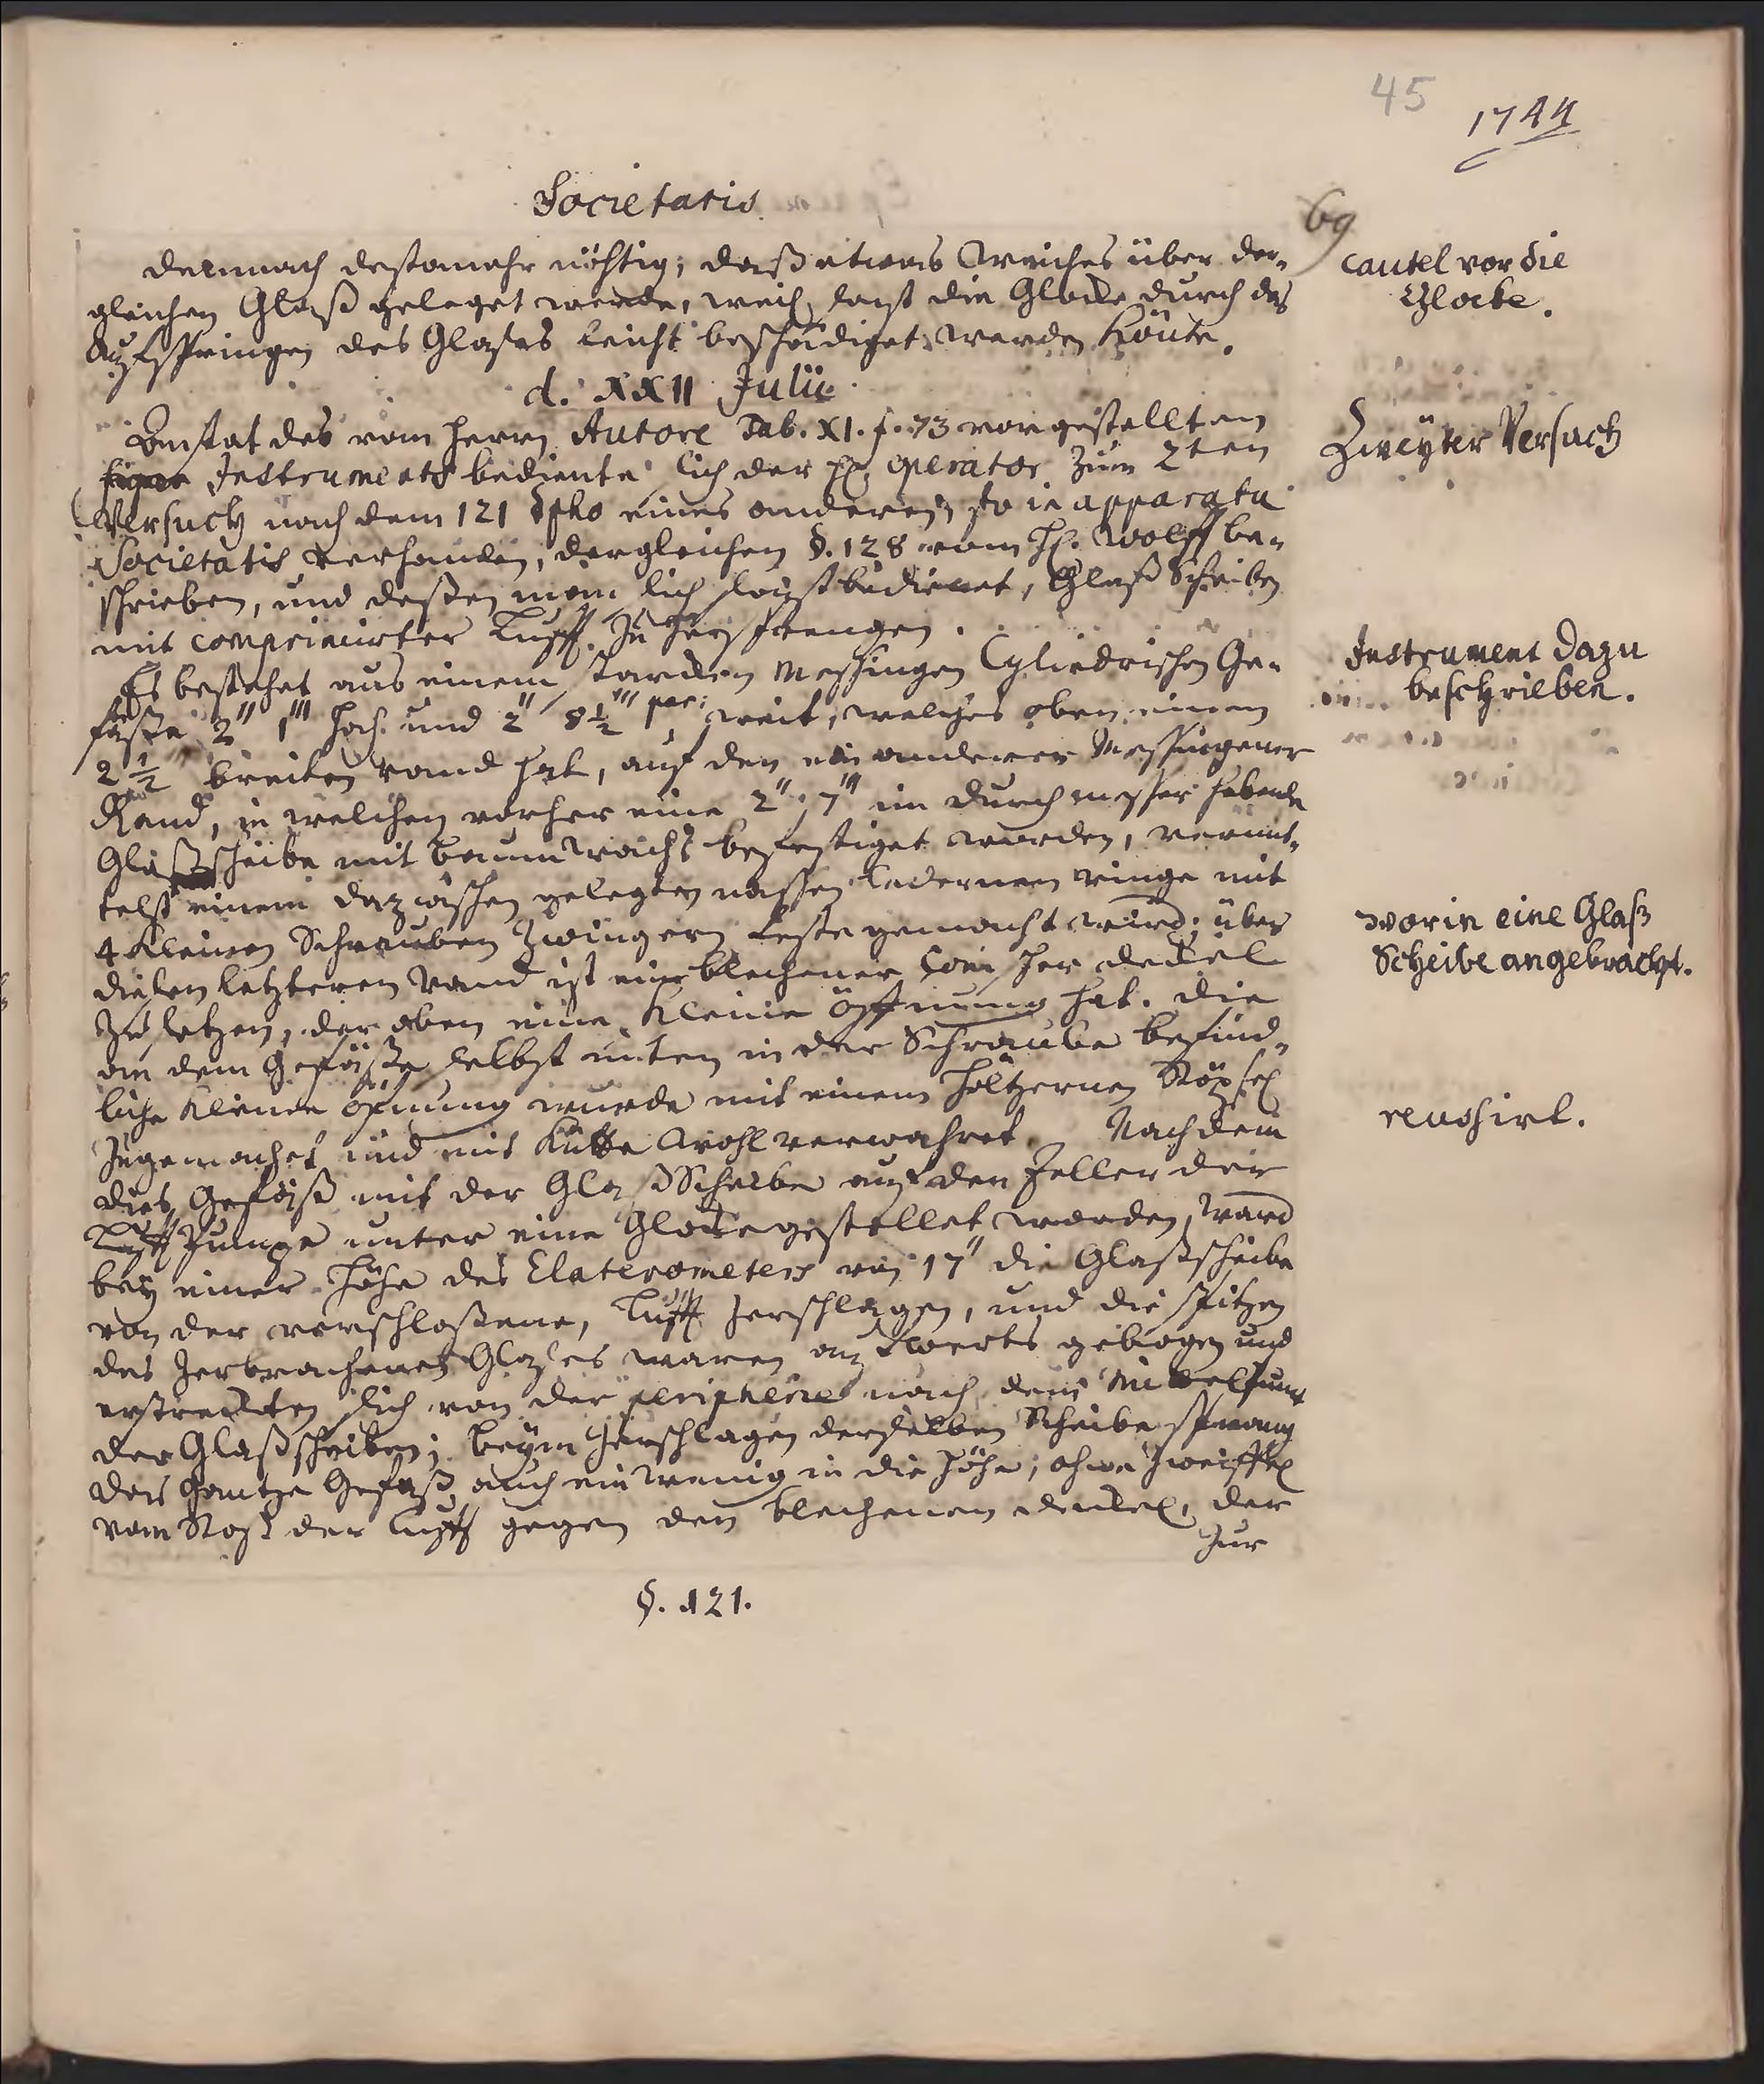 45
1744
Societatis
69
demnach destomehr nöhtig; daß etwas Weiches über der-
gleichen Glaß geleget werde, weil sonst die Glocke durch das
aufspringen des Glases leicht beschädiget werden könte.
cautel vor die
Glocke.
d. XXII Julii
Anstat des vom Herrn Autore Tab. XI. f. 73 vorgestellten
Instruments bediente sich der H. operator zum 2ten
Versuch nach dem 121 §pho eines anderen, so in apparatu
Societatis verhanden, dergleichen §. 128 vom H. Wolff be-
schrieben, und deßen man sich sonst bedienet, Glaß Scheiben
mit comprimirter Lufft zu zersprengen.
Zweyter Versuch
Es bestehet aus einem starcken Messingen Cylindrischen Ge-
fäße 2" 1''' hoch und 2" 8½''' par: weit, welches oben einen
2½''' breiten rand hat, auf den ein anderer Messingener
Rand, in welchen vorher eine 2", 7''' im durchmesser habende
Glaßscheibe mit baumwachs befestiget worden, vermit-
telst einem dazwischen gelegten nassen ledernen ringe mit
4 kleinen Schrauben Zwingern feste gemacht wird; über
diesen letzteren rand ist ein blecherner Conischer deckel
zu setzen, der oben eine kleine öffnung hat. die
an dem Gefäße selbst unten in der Schraube befind-
liche kleine öfnung wurde mit einem höltzernen Stöpsel
zugemachet und mit Kütte wohl verwahret. Nachdem
dies Gefäß mit der Glaß Scheibe auf den Teller der
Lufft Pumpe unter eine Glocke gestellet worden, ward
bey einer Höhe des Elaterometers von 17" die Glaßscheibe
von der verschloßene, Lufft zerschlagen, und die spitzen
des zerbrochenen Glases waren aufwerts gebogen und
erstreckten sich von der peripherie nach dem Mittelpunct
der Glaßscheiben; beym zerschlagen derselben Scheibe sprang
das gantze Gefäß auch ein wenig in die Höhe; ohne Zweiffel
vom Stoß der Lufft gegen den blechernen deckel, der
zur
Instrument dazu
beschrieben.
worin eine Glaß
Scheibe angebracht.
reussirt.
§. 121.